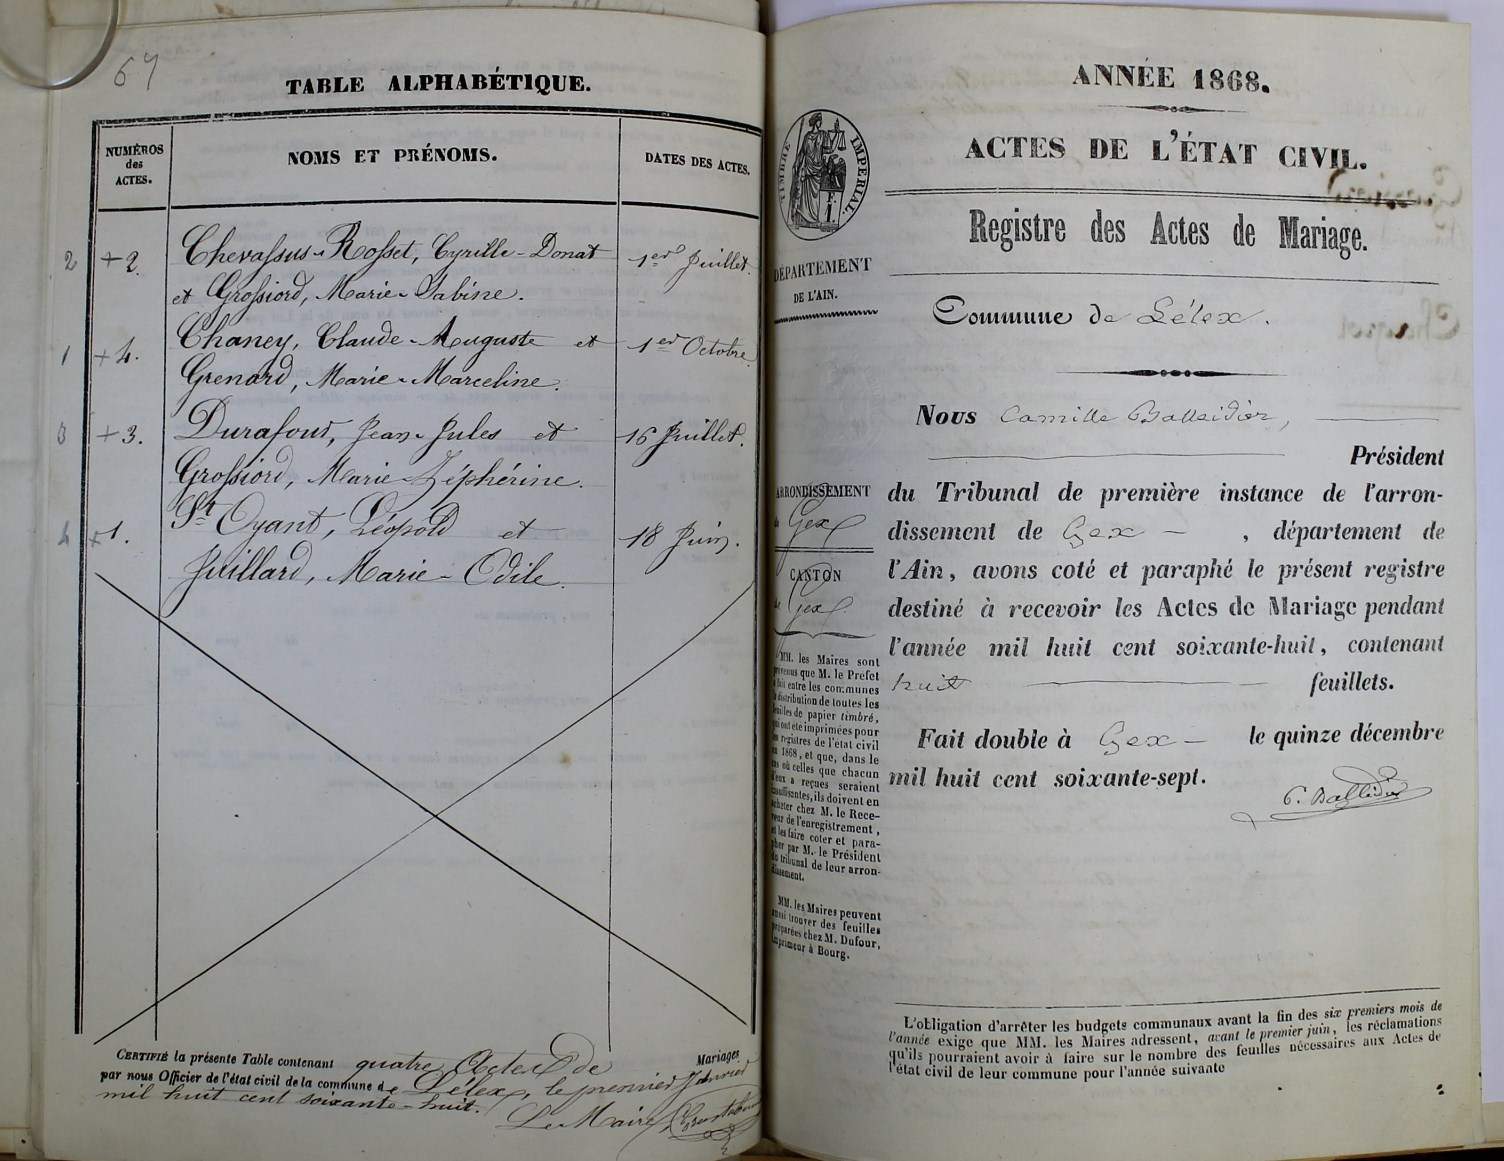 67
TABLE ALPHABÉTIQUE.
NUMÉROS des ACTES.
NOMS ET PRÉNOMS.
DATES DES ACTES.
2 +2. Chevassus-Rosset, Cyrille-Donat 1er Juillet.
et Grossiord, Marie-Sabine.
1 +4. Chaney, Claude-Auguste et 1er Octobre
Grenard, Marie-Marceline.
3 +3. Durafour, Jean-Jules et 16 Juillet.
Grossiord, Marie-Zéphérine.
4 +1. St Oyant, Léopold et 18 Juin.
Juillard, Marie-Odile.
CERTIFIÉ la présente Table contenant quatre Actes de Mariages
par nous Officier de l'état civil de la commune de Lélex, le premier Janvier
mil huit cent soixante-huit.
Le Maire,
ANNÉE 1868.
ACTES DE L'ÉTAT CIVIL.
Registre des Actes de Mariage.
TIMBRE IMPÉRIAL.
F.
1
DÉPARTEMENT
DE L'AIN.
Commune de Lélex.
ARRONDISSEMENT
de Gex
CANTON
de Gex
MM. les Maires sont
prévenus que M. le Préfet
a fait entre les communes
la distribution de toutes les
feuilles de papier timbré,
qui ont été imprimées pour
les registres de l'état civil
en 1868, et que, dans le
cas où celles que chacun
d'eux a reçues seraient
insuffisantes, ils doivent en
acheter chez M. le Rece-
veur de l'enregistrement,
et les faire coter et para-
pher par M. le Président
du tribunal de leur arron-
dissement.
MM. les Maires peuvent
aussi trouver des feuilles
préparées chez M. Dufour,
imprimeur à Bourg.
Nous Camille Balleidier,
Président
du Tribunal de première instance de l'arron-
dissement de Gex , département de
l'Ain, avons coté et paraphé le présent registre
destiné à recevoir les Actes de Mariage pendant
l'année mil huit cent soixante-huit, contenant
huit feuillets.
Fait double à Gex le quinze décembre
mil huit cent soixante-sept.
C. Balleidier
L'obligation d'arrêter les budgets communaux avant la fin des six premiers mois de
l'année exige que MM. les Maires adressent, avant le premier juin, les réclamations
qu'ils pourraient avoir à faire sur le nombre des feuilles nécessaires aux Actes de
l'état civil de leur commune pour l'année suivante